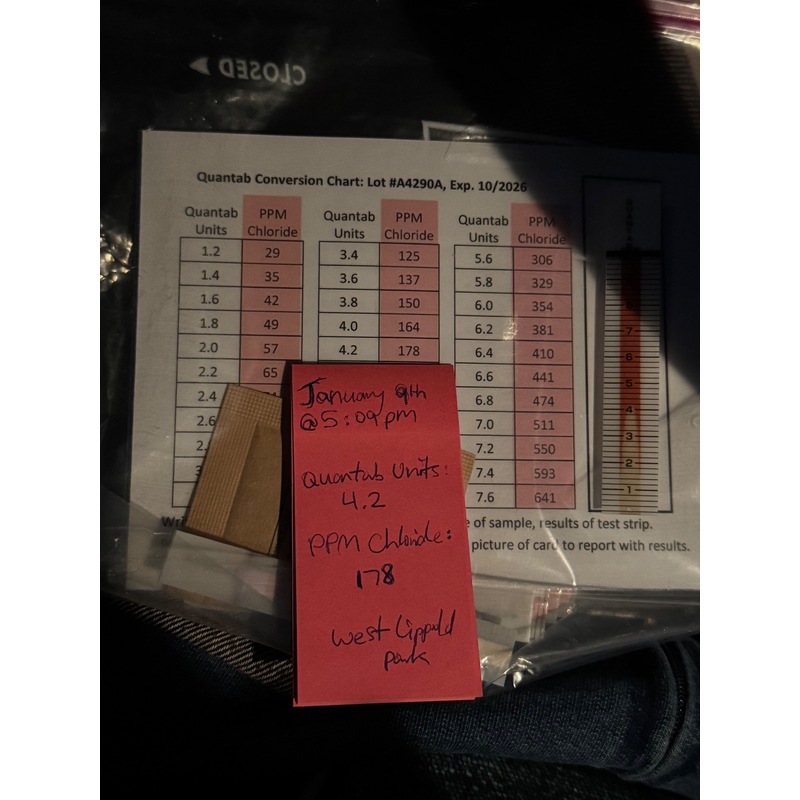 CLOSED
Quantab Conversion Chart: Lot #A4290A, Exp. 10/2026
Quantab Units PPM Chloride Quantab Units PPM Chloride Quantab Units PPM Chloride
1.2 29 3.4 125 5.6 306
1.4 35 3.6 137 5.8 329
1.6 42 3.8 150 6.0 354
1.8 49 4.0 164 6.2 381
2.0 57 4.2 178 6.4 410
2.2 65 6.6 441
2.4 6.8 474
2.6 7.0 511
7.2 550
7.4 593
7.6 641
of sample, results of test strip.
picture of card to report with results.
7
6
5
4
3
2
1
January 9th
@5:09pm
Quantab Units:
4.2
PPM Chloride:
178
West Lippold
Park